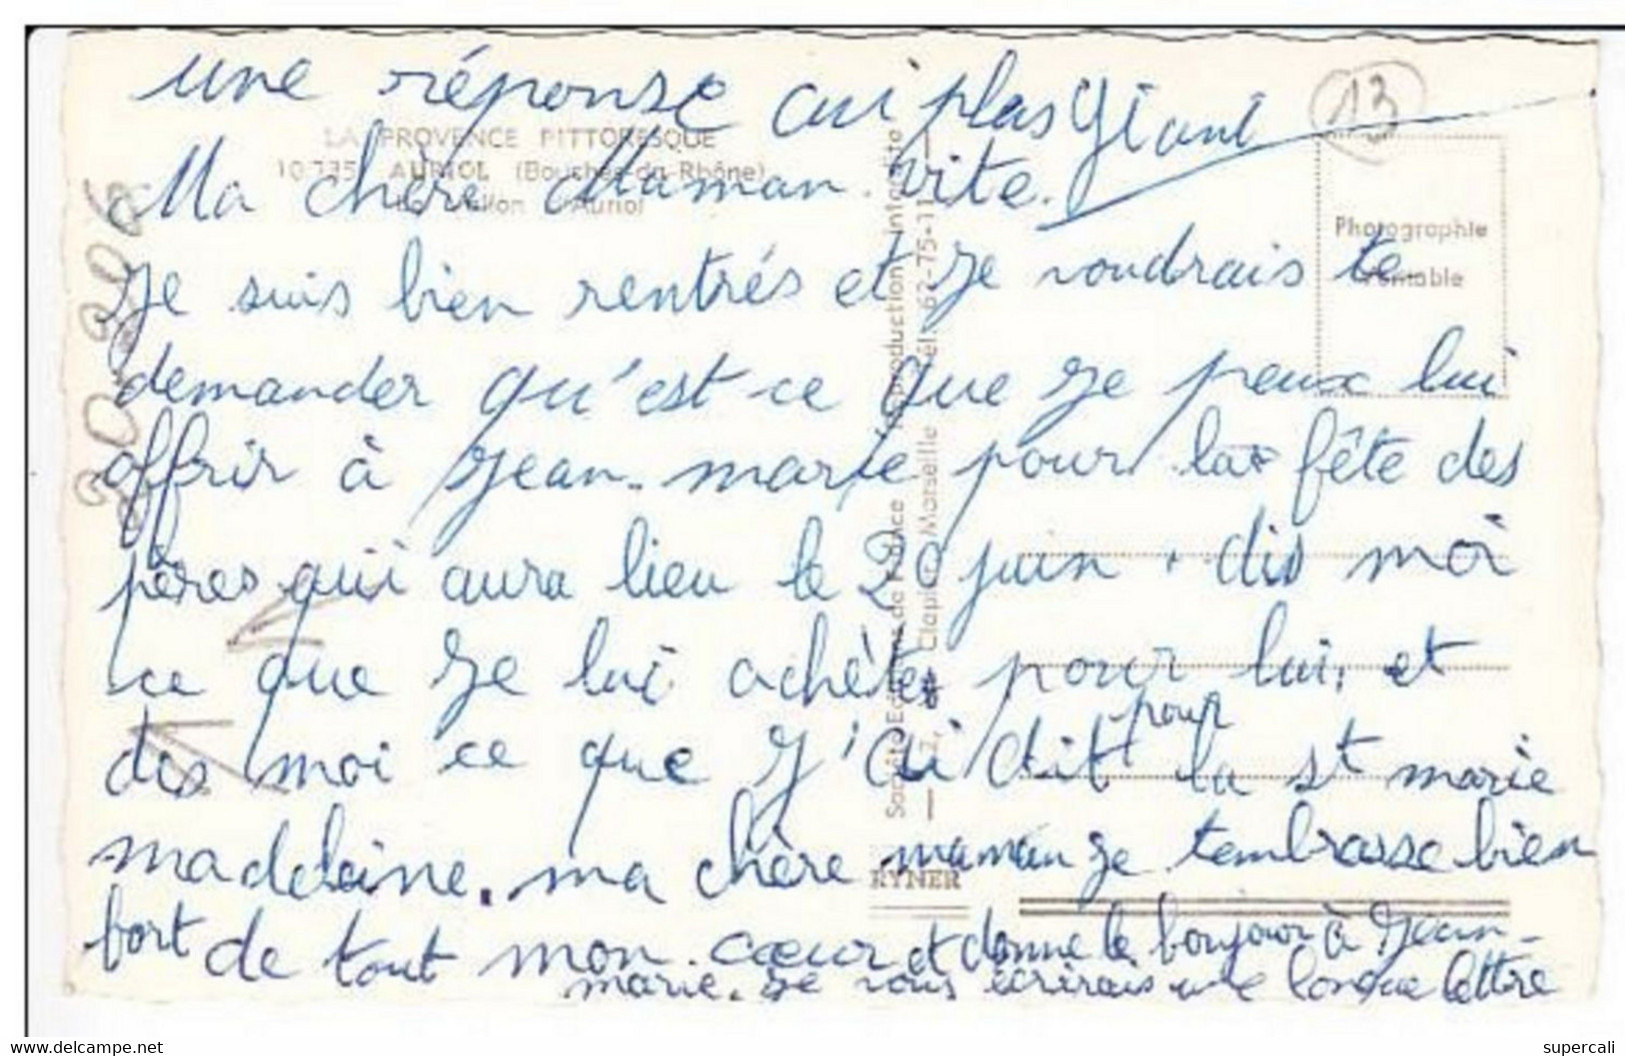 une réponse au plas
vite.
LA PROVENCE PITTORESQUE
AURIOL (Bouches-du-Rhône)
Le Vallon d'Auriol
Ma chère Maman.
Je suis bien rentrés et je voudrais te
demander qu'est-ce que je peux lui
offrir à Jean-marie pour la fête des
pères qui aura lieu le 20 juin. dis moi
ce que je lui achète pour lui, et
dis moi ce que j'ai dit pour la st marie
madeleine. ma chère maman je tembrasse bien
fort de tout mon cœur et donne le bonjour à Jean-
marie. Je vous écrirais une longue lettre
13
Photographie
Véritable
20 206
Société Editions de France Reproduction interdite
Clapier, Marseille Tél. 62-75-11
RYNER
www.delcampe.net
supercali